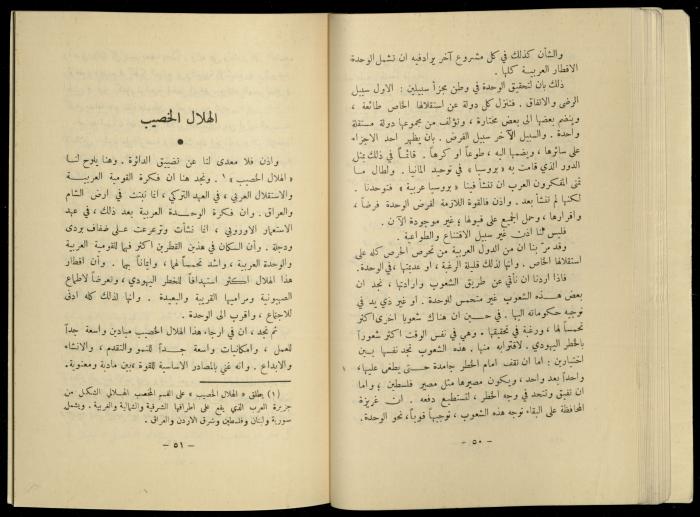 والشأن كذلك في كل مشروع آخر يراد فيه ان تشمل الوحدة
الاقطار العربية كلها .
ذلك بان لتحقيق الوحدة في وطن مجزأ سبيلين : الاول سبيل
الرضى والاتفاق . فتنزل كل دولة عن استقلالها الخاص طائعة ،
وينضم بعضها الى بعض مختارة ، وتؤلف من مجموعها دولة مستقلة
واحدة . والسبيل الآخر سبيل الفرض . بان يظهر احد الاجزاء
على سائرها ، ويضمها اليه ، طوعاً او كرهاً . قائماً في ذلك بمثل
الدور الذي قامت به « بروسيا » في توحيد المانيا . ولطال ما
تمنى المفكرون العرب ان تنشأ فينا « بروسيا عربية » فتوحدنا .
لكنها لم تنشأ بعد . واذن فالقوة اللازمة لفرض الوحدة فرضاً ،
واقرارها ، وحمل الجميع على قبولها ؛ غير موجودة الآن .
فليس ثمّا اذن غير سبيل الاقتناع والطواعية .
وقد مرّ بنا ان من الدول العربية من تحرص الحرص كله على
استقلالها الخاص . وانها لذلك قليلة الرغبة ، او عديمتها ، في الوحدة .
فاذا اردنا ان نأتي عن طريق الشعوب وارادتها ، نجد ان
بعض هذه الشعوب غير متحمس للوحدة . او غير ذي يد في
توجيه حكوماته اليها . في حين ان هناك شعوبا اخرى اكثر
تحمساً لها ، ورغبة في تحقيقها . وهي في نفس الوقت اكثر شعوراً
بالخطر اليهودي . لاقترابه منها . هذه الشعوب تجد نفسها بين
اختيارين : اما ان تقف امام الخطر جامدة حتى يطغى عليها ،
واحداً بعد واحد ، ويكون مصيرها مثل مصير فلسطين ؛ واما
ان تفيق وتتحد في وجه الخطر ، لتستطيع دفعه . ان غريزة
المحافظة على البقاء توجه هذه الشعوب ، توجيهاً قوياً ، نحو الوحدة .
- ٥٠ -
الهلال الخصيب
واذن فلا معدى لنا عن تضييق الدائرة . وهنا يلوح لنا
« الهلال الخصيب » ١ . ونجد هنا ان فكرة القومية العربية
والاستقلال العربي ، في العهد التركي ، انما نبتت في ارض الشام
والعراق . وان فكرة الوحدة العربية بعد ذلك ، في عهد
الاستعمار الاوروبي ، انما نشأت وترعرعت على ضفاف بردى
ودجلة . وأن السكان في هذين القطرين اكثر فهما للقومية العربية
والوحدة العربية ، واشد تحمساً لهما ، وايماناً بهما . وأن اقطار
هذا الهلال اكثر استهدافاً للخطر اليهودي ، وتعرضاً لاطماع
الصهيونية ومراميها القريبة والبعيدة . وانها لذلك كله ادنى
للاجتماع ، واقرب الى الوحدة .
ثم نجد ، ان في ارجاء هذا الهلال الخصيب ميادين واسعة جداً
للعمل ، وامكانيات واسعة جداً للنمو والتقدم ، والانشاء
والابداع . وانه غني بالمصادر الاساسية للقوة ، من مادية ومعنوية .
(١) يطلق « الهلال الخصيب » على القسم المخصب الهلالي الشكل من
جزيرة العرب الذي يقع على اطرافها الشرقية والشمالية والغربية . ويشمل
سورية ولبنان وفلسطين وشرق الاردن والعراق .
- ٥١ -